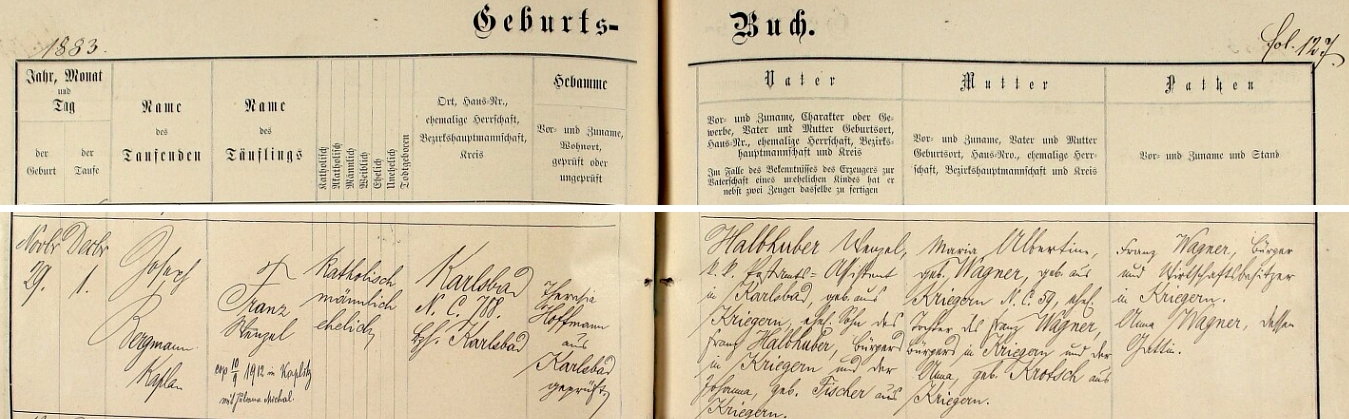 Geburts-Buch.
1883.
fol. 127
Jahr, Monat
und
Tag
der Geburt
der Taufe
Name
des
Taufenden
Name
des
Täuflings
Katholisch
Akatholisch
Männlich
Weiblich
Ehelich
Unehelich
Todtgeboren
Ort, Haus-Nr.,
ehemalige Herrschaft,
Bezirkshauptmannschaft,
Kreis
Hebamme
Vor- und Zuname,
Wohnort,
geprüft oder
ungeprüft
Vater
Vor- und Zuname, Charakter oder Ge-
werbe, Vater und Mutter Geburtsort,
Haus-Nr., ehemalige Herrschaft, Bezirks-
hauptmannschaft und Kreis
Im Falle des Bekenntnisses des Erzeugers zur
Vaterschaft eines unehelichen Kindes hat er
nebst zwei Zeugen dasselbe zu fertigen
Mutter
Vor- und Zuname, Vater und Mutter
Geburtsort, Haus-Nro., ehemalige Herr-
schaft, Bezirkshauptmannschaft und Kreis
Pathen
Vor- und Zuname und Stand
Novbr
29.
Decbr
1.
Joseph
Bergmann
Kaplan
Franz
Wenzel
cop 10/9 1912 in Kaplitz
mit Johanna Michal.
Katholisch
männlich
ehelich
Karlsbad
N. C. 788.
Bzh. Karlsbad
Theresia
Hoffmann
aus
Karlsbad
geprüft
Halbhuber Wenzel,
k. k. Postamts-Assistent
in Karlsbad, geb. aus
Kriegern, ehel. Sohn des
Franz Halbhuber, Bürgers
in Kriegern und der
Johanna, geb. Fischer aus
Kriegern.
Maria Albertine,
geb. Wagner, geb. aus
Kriegern N. C. 59, ehel.
Tochter des Franz Wagner,
Bürgers in Kriegern und der
Anna, geb. Krotsch aus
Kriegern.
Franz Wagner, Bürger
und Wirtschaftsbesitzer
in Kriegern.
Anna Wagner, dessen
Gattin.